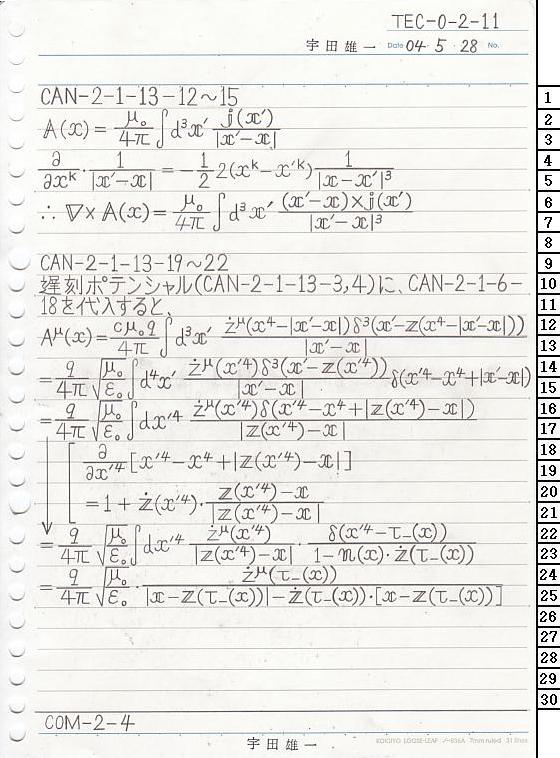 TEC-0-2-11
宇田雄一 Date 04・5・28 No.
CAN-2-1-13-12～15
𝔸(𝕩) = μ₀/4π ∫d³𝕩′ 𝕛(𝕩′)/|𝕩′-𝕩|
∂/∂xᵏ · 1/|𝕩′-𝕩| = -1/2 2(xᵏ-x′ᵏ) 1/|𝕩-𝕩′|³
∴ ∇×𝔸(𝕩) = μ₀/4π ∫d³𝕩′ (𝕩′-𝕩)×𝕛(𝕩′)/|𝕩′-𝕩|³
CAN-2-1-13-19～22
遅刻ポテンシャル(CAN-2-1-13-3,4)に、CAN-2-1-6-
18を代入すると、
A^μ(x) = cμ₀q/4π ∫d³𝕩′ ż^μ(x⁴-|𝕩′-𝕩|)δ³(𝕩′-𝕫(x⁴-|𝕩′-𝕩|))/|𝕩′-𝕩|
= q/4π √(μ₀/ε₀) ∫d⁴x′ ż^μ(x′⁴)δ³(𝕩′-𝕫(x′⁴))/|𝕩′-𝕩| δ(x′⁴-x⁴+|𝕩′-𝕩|)
= q/4π √(μ₀/ε₀) ∫dx′⁴ ż^μ(x′⁴)δ(x′⁴-x⁴+|𝕫(x′⁴)-𝕩|)/|𝕫(x′⁴)-𝕩|
∂/∂x′⁴ [x′⁴-x⁴+|𝕫(x′⁴)-𝕩|]
= 1+𝕫̇(x′⁴)· 𝕫(x′⁴)-𝕩/|𝕫(x′⁴)-𝕩|
= q/4π √(μ₀/ε₀) ∫dx′⁴ ż^μ(x′⁴)/|𝕫(x′⁴)-𝕩| · δ(x′⁴-τ₋(x))/1-𝕟(x)·𝕫̇(τ₋(x))
= q/4π √(μ₀/ε₀) · ż^μ(τ₋(x))/|𝕩-𝕫(τ₋(x))|-𝕫̇(τ₋(x))·[𝕩-𝕫(τ₋(x))]
COM-2-4
宇田雄一
KOKUYO LOOSE-LEAF ノ-836A 7mm ruled 31 lines
1
2
3
4
5
6
7
8
9
10
11
12
13
14
15
16
17
18
19
20
21
22
23
24
25
26
27
28
29
30